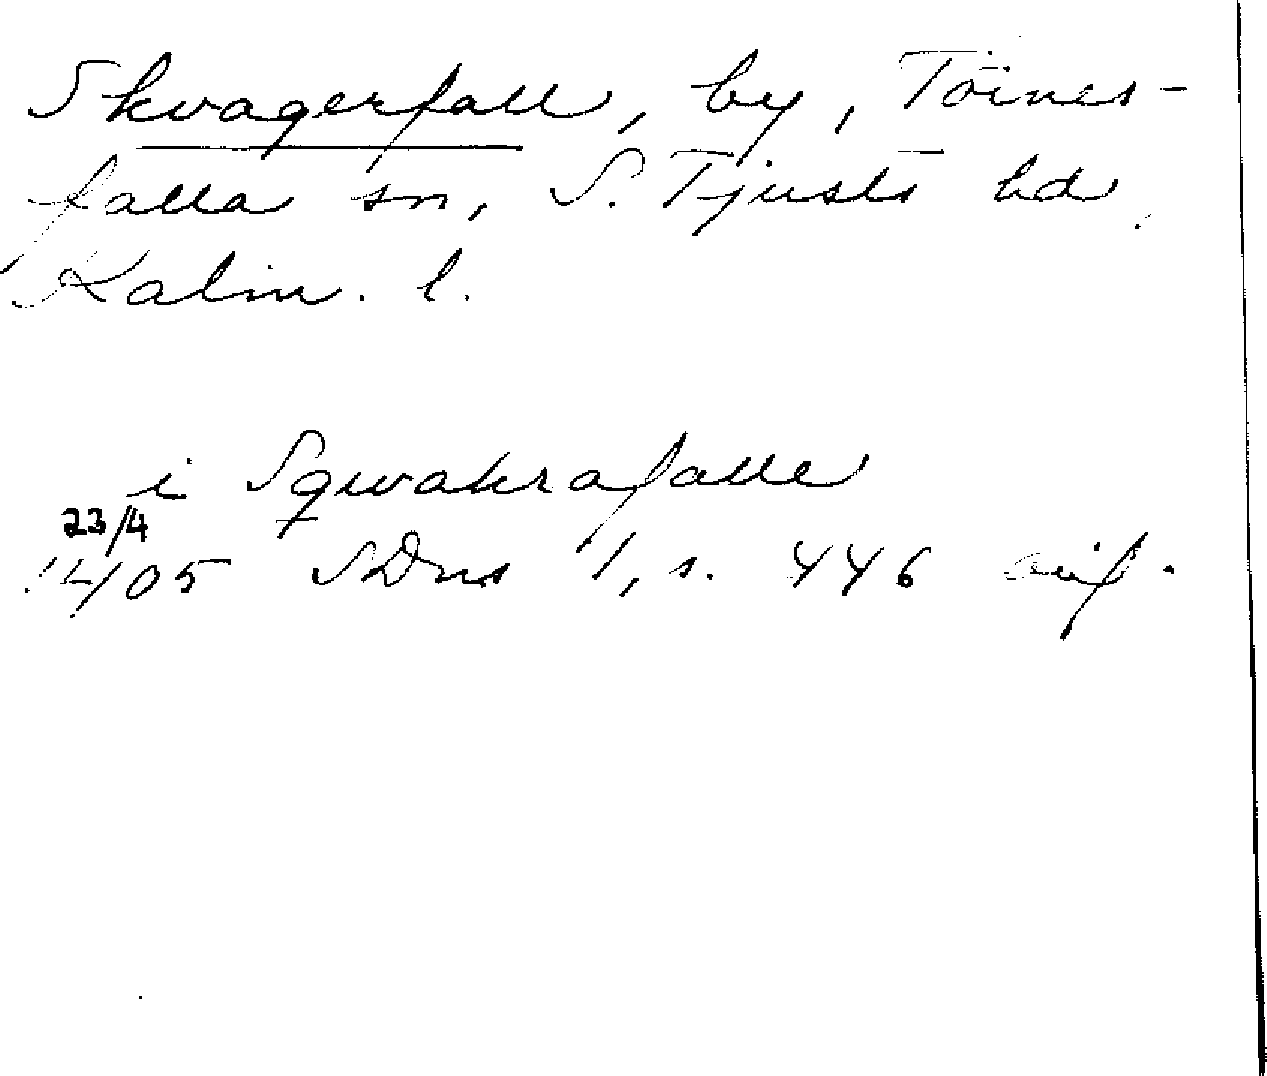 Skvagerfall, by, Törnes-
falla sn, S. Tjusts hd
Kalm. l.
i Sqwakrafalle
23/4
14/05 SDns 1, s. 446 avf.